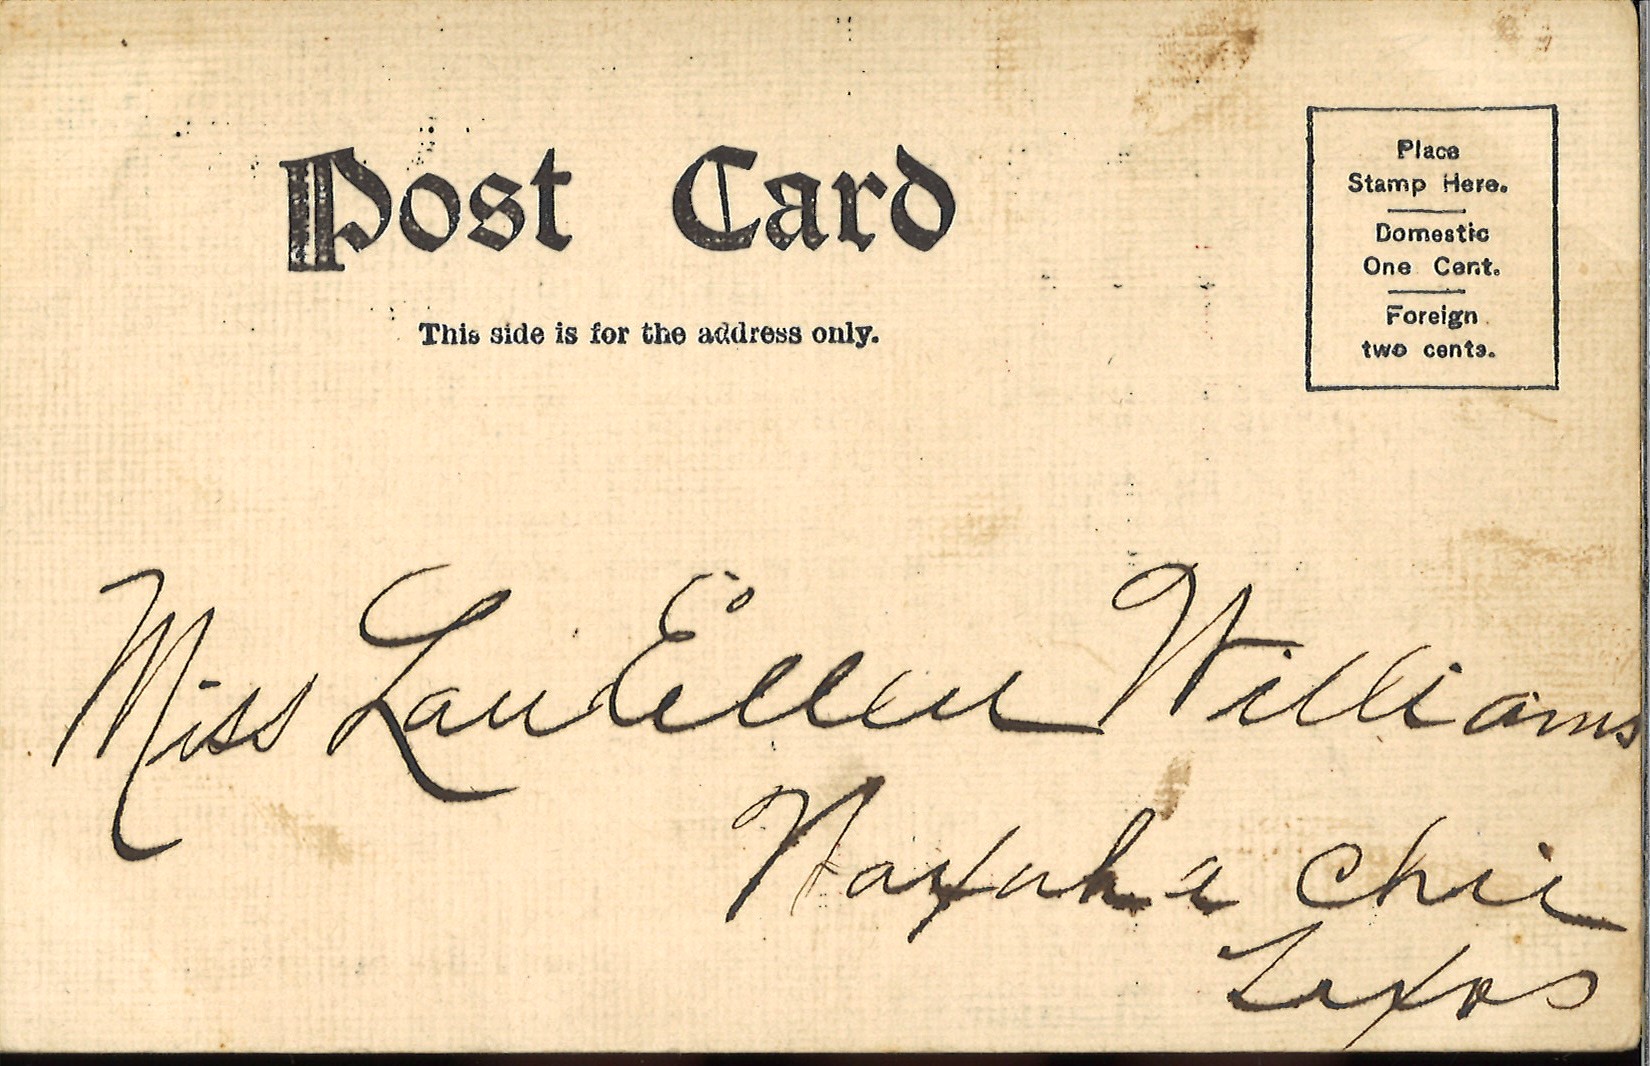 Post Card
This side is for the address only.
Place
Stamp Here.
Domestic
One Cent.
Foreign
two cents.
Miss Lau Ellen Williams
Waxahachie
Texas